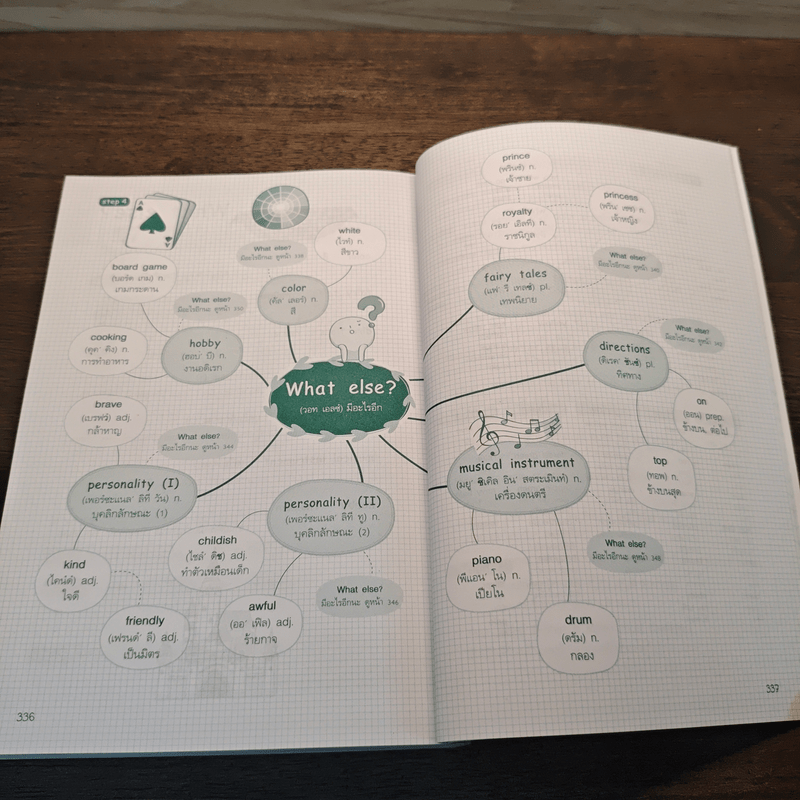 step 4
A
What else?
มีอะไรอีกนะ ดูหน้า 338
white
(ไวท์) n.
สีขาว
board game
(บอร์ด เกม) n.
เกมกระดาน
color
(คัล' เลอร์) n.
สี
What else?
มีอะไรอีกนะ ดูหน้า
cooking
(คุค' คิง) n.
การทำอาหาร
hobby
(ฮอบ' บี) n.
งานอดิเรก
?
What else?
(วอท เอลซ์) มีอะไรอีก
brave
(เบรฟว์) adj.
กล้าหาญ
What else?
มีอะไรอีกนะ ดูหน้า 344
personality (I)
(เพอร์ซะแนล' ลิที วัน) n.
บุคลิกลักษณะ (1)
personality (II)
(เพอร์ซะแนล' ลิที ทู) n.
บุคลิกลักษณะ (2)
childish
(ไชล์' ดิช) adj.
ทำตัวเหมือนเด็ก
kind
(ไคน์ด์) adj.
ใจดี
What else?
มีอะไรอีกนะ ดูหน้า 346
awful
(ออ' เฟิล) adj.
ร้ายกาจ
friendly
(เฟรนด์' ลี) adj.
เป็นมิตร
336
prince
(พรินซ์) n.
เจ้าชาย
princess
(พริน' เซซ) n.
เจ้าหญิง
royalty
(รอย' เอิลที) n.
ราชนิกูล
What else?
มีอะไรอีกนะ ดูหน้า
fairy tales
(แฟ' รี เทลซ์) pl.
เทพนิยาย
What else?
มีอะไรอีกนะ ดูหน้า
directions
(ดิเรค' ชันซ์) pl.
ทิศทาง
on
(ออน) prep.
ข้างบน, ต่อไป
musical instrument
(มยู' ซิเคิล อิน' สตระเมินท์) n.
เครื่องดนตรี
top
(ทอพ) n.
ข้างบนสุด
What else?
มีอะไรอีกนะ ดูหน้า 348
piano
(พีแอน' โน) n.
เปียโน
drum
(ดรัม) n.
กลอง
337